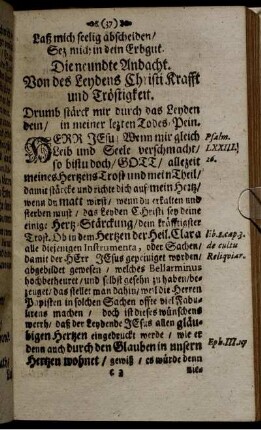 (37)
Laß mich seelig abscheiden/
Setz mich in dein Erbgut.
Die neundte Andacht.
Von des Leydens Christi Krafft
und Tröstigkeit.
Drumb stärck nur durch das Leyden
dein/ in meiner lezten Todes-Pein.
HERR JEsu! Wenn mir gleich Psalm.
Leib und Seele verschmacht/ LXXIII.
so bistu doch/ GOTT/ allezeit 26.
meines Hertzens Trost und mein Theil/
damit stärcke und richte dich auf mein Hertz/
wenn du matt wirst/ wenn du erkalten und
sterben must/ das Leyden Christi sey deine
einige Hertz-Stärckung/ dein kräfftigster
Trost. Ob in dem Hertzen der Heil. Clara lib. 2. cap. 3.
alle diejenigen Instrumenta, oder Sachen/ de cultu
damit der HErr JEsus gepeiniget worden/ Reliquiar.
abgebildet gewesen/ welches Bellarminus
hochbetheuret/ und selbst gesehn zu haben/be-
zeuget/ das stellet man dahin/ weil die Herren
Papisten in solchen Sachen offte viel Fabu-
lirens machen/ doch ist dieses wünschens
werth/ daß der Leydende JEsus allen gläu-
bigen Hertzen eingedruckt werde/ wie er Eph. III. 17
denn auch durch den Glauben in unsern
Hertzen wohnet/ gewiß/ es würde denn
C 3 nie-